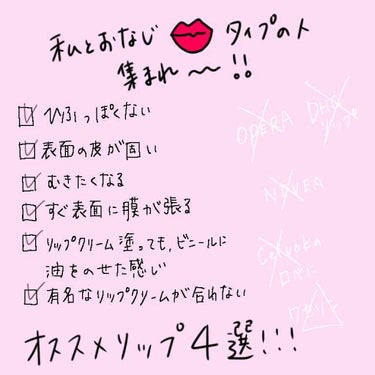 私とおなじ 👄 タイプの人
集まれ〜!!
☑ ひふっぽくない
☑ 表面の皮が固い
☑ むきたくなる
☑ すぐ表面に膜が張る
☑ リップクリーム塗っても、ビニールに
油をのせた感じ
☑ 有名なリップクリームが合わない
OPERA
DHC
リップ
NIVEA
ワセリン
オススメリップ4選!!!